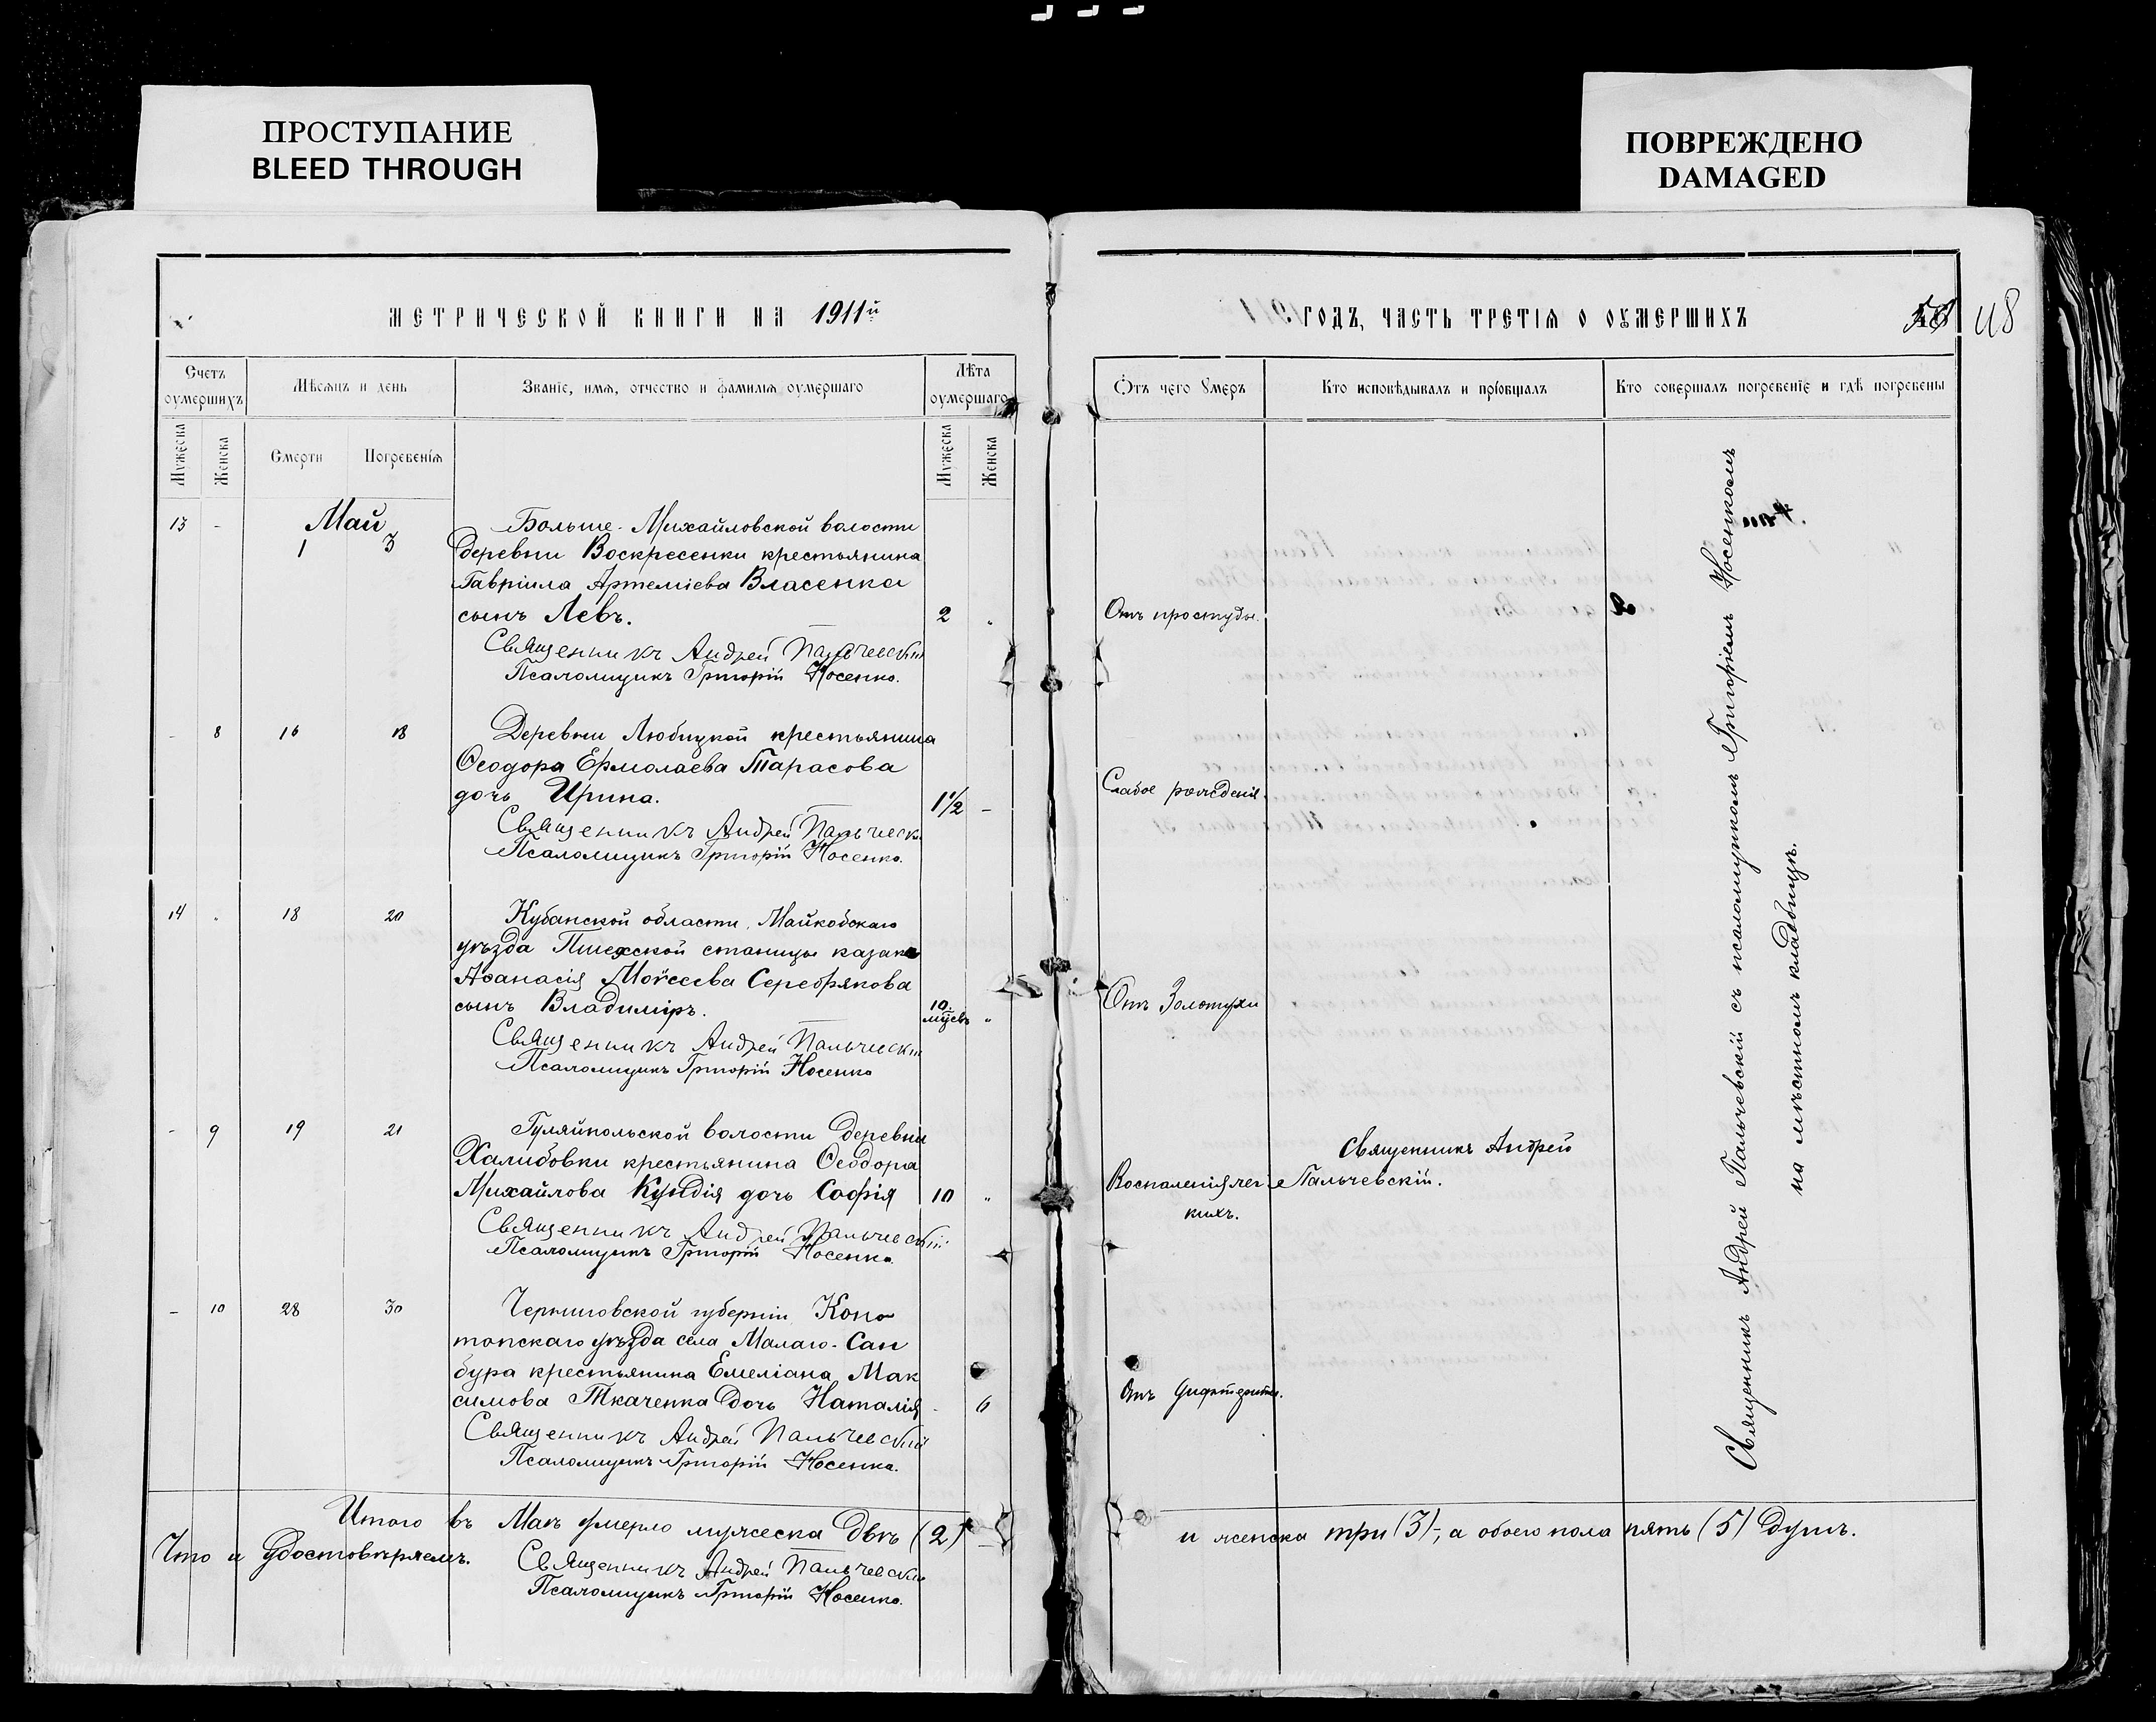 ПРОСТУПАНИЕ
BLEED THROUGH
ПОВРЕЖДЕНО
DAMAGED
МЕТРИЧЕСКОЙ КНИГИ НА 1911й
Счетъ оумершихъ
Мѣсяцъ и день
Званіе, имя, отчество и фамилія оумершаго
Лѣта оумершаго
Мужеска
Женска
Смерти
Погребенія
Мужеска
Женска
Май
13 - 1 3
Больше-Михайловской волости
деревни Воскресенки крестьянина
Гавріила Артеміева Власенка
сынъ Левъ. 2
Священникъ Андрей Пальчевскій
Псаломщикъ Григорій Носенко.
- 8 16 18
Деревни Любицкой крестьянина
Ѳеодора Ермолаева Тарасова
дочь Ирина. 1½ -
Священникъ Андрей Пальчевскі
Псаломщикъ Григорій Носенко.
14 18 20
Кубанской области, Майкобскаго
уѣзда Пшехской станицы казака
Аѳанасія Моѵсеева Серебрякова
сынъ Владиміръ. 10 мцсвъ "
Священникъ Андрей Пальчевскі
Псаломщикъ Григорій Носенко
- 9 19 21
Гуляйпольской волости деревни
Халибовки крестьянина Ѳеодора
Михайлова Кундія дочь Софія 10 "
Священникъ Андрей Пальчевскій
Псаломщикъ Григорій Носенко.
- 10 28 30
Черниговской губерніи, Коно
топскаго уѣзда села Малаго-Сам
бура крестьянина Емеліана Мак
симова Ткаченка дочь Наталія - 6
Священникъ Андрей Пальчевскій
Псаломщикъ Григорій Носенко.
Итого въ Маѣ умерло мужеска двѣ (2)
Что и удостовѣряемъ.
Священникъ Андрей Пальчевскій
Псаломщикъ Григорій Носенко.
ГОДЪ, ЧАСТЬ ТРЕТІЯ О ОУМЕРШИХЪ
Ѿтъ чего оумеръ
Кто исповѣдывалъ и пріобщалъ
Кто совершалъ погребеніе и гдѣ погребены
Отъ простуды.
Слабое рожденія.
Отъ Золотухи
Воспаленія лег
кихъ.
Священникъ Андрей
Пальчевскій.
Отъ дифтерита.
Священникъ Андрей Пальчевскій съ псаломщикомъ Григоріемъ Носенкомъ
на мѣстномъ кладбищѣ.
и женска три (3), а обоего пола пять (5) душъ.